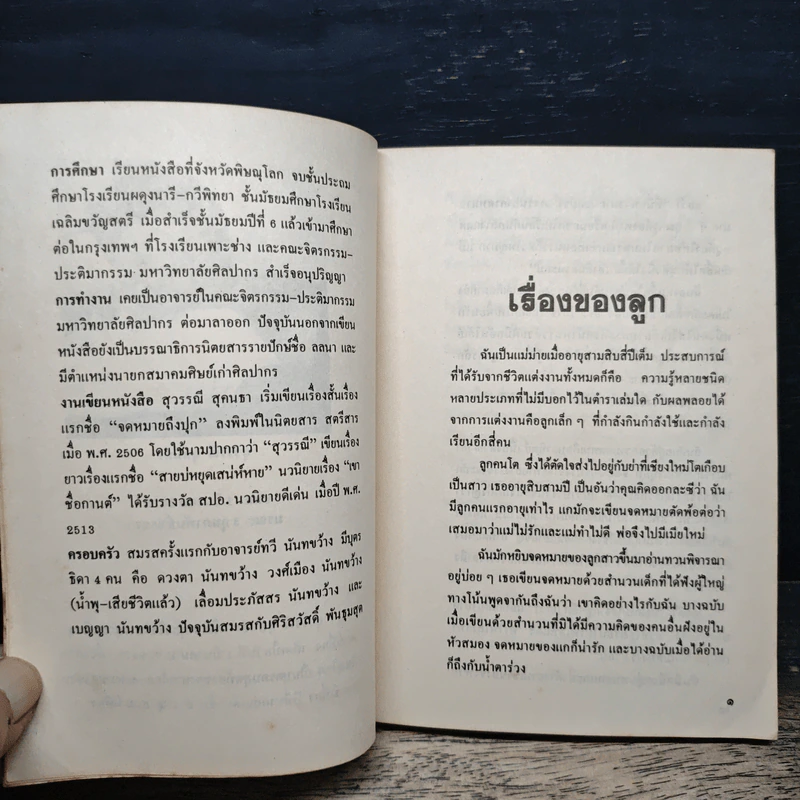 การศึกษา เรียนหนังสือที่จังหวัดพิษณุโลก จบชั้นประถม
ศึกษาโรงเรียนผดุงนารี-กวีพิทยา ชั้นมัธยมศึกษาโรงเรียน
เฉลิมขวัญสตรี เมื่อสำเร็จชั้นมัธยมปีที่ 6 แล้วเข้ามาศึกษา
ต่อในกรุงเทพฯ ที่โรงเรียนเพาะช่าง และคณะจิตรกรรม-
ประติมากรรม มหาวิทยาลัยศิลปากร สำเร็จอนุปริญญา
การทำงาน เคยเป็นอาจารย์ในคณะจิตรกรรม-ประติมากรรม
มหาวิทยาลัยศิลปากร ต่อมาลาออก ปัจจุบันนอกจากเขียน
หนังสือยังเป็นบรรณาธิการนิตยสารรายปักษ์ชื่อ ลลนา และ
มีตำแหน่งนายกสมาคมศิษย์เก่าศิลปากร
งานเขียนหนังสือ สุวรรณี สุคนธา เริ่มเขียนเรื่องสั้นเรื่อง
แรกชื่อ “จดหมายถึงปุก” ลงพิมพ์ในนิตยสาร สตรีสาร
เมื่อ พ.ศ. 2506 โดยใช้นามปากกาว่า “สุวรรณี” เขียนเรื่อง
ยาวเรื่องแรกชื่อ “สายบ่หยุดเสน่ห์หาย” นวนิยายเรื่อง “เขา
ชื่อกานต์” ได้รับรางวัล สปอ. นวนิยายดีเด่น เมื่อปี พ.ศ.
2513
ครอบครัว สมรสครั้งแรกกับอาจารย์ทวี นันทขว้าง มีบุตร
ธิดา 4 คน คือ ดวงตา นันทขว้าง วงศ์เมือง นันทขว้าง
(น้ำพุ-เสียชีวิตแล้ว) เลื่อมประภัสสร นันทขว้าง และ
เบญญา นันทขว้าง ปัจจุบันสมรสกับศิริสวัสดิ์ พันธุมสุต
เรื่องของลูก
ฉันเป็นแม่ม่ายเมื่ออายุสามสิบสี่ปีเต็ม ประสบการณ์
ที่ได้รับจากชีวิตแต่งงานทั้งหมดก็คือ ความรู้หลายชนิด
หลายประเภทที่ไม่มีบอกไว้ในตำราเล่มใด กับผลพลอยได้
จากการแต่งงานคือลูกเล็ก ๆ ที่กำลังกินกำลังใช้และกำลัง
เรียนอีกสี่คน
ลูกคนโต ซึ่งได้ตัดใจส่งไปอยู่กับย่าที่เชียงใหม่โตเกือบ
เป็นสาว เธออายุสิบสามปี เป็นอันว่าคุณคิดออกละซีว่า ฉัน
มีลูกคนแรกอายุเท่าไร แกมักจะเขียนจดหมายตัดพ้อต่อว่า
เสมอมาว่าแม่ไม่รักและแม่ทำไม่ดี พ่อจึงไปมีเมียใหม่
ฉันมักหยิบจดหมายของลูกสาวขึ้นมาอ่านทวนพิจารณา
อยู่บ่อย ๆ เธอเขียนจดหมายด้วยสำนวนเด็กที่ได้ฟังผู้ใหญ่
ทางโน้นพูดจากันถึงฉันว่า เขาคิดอย่างไรกับฉัน บางฉบับ
เมื่อเขียนด้วยสำนวนที่มิได้มีความคิดของคนอื่นฝังอยู่ใน
หัวสมอง จดหมายของแกก็น่ารัก และบางฉบับเมื่อได้อ่าน
ก็ถึงกับน้ำตาร่วง
๑